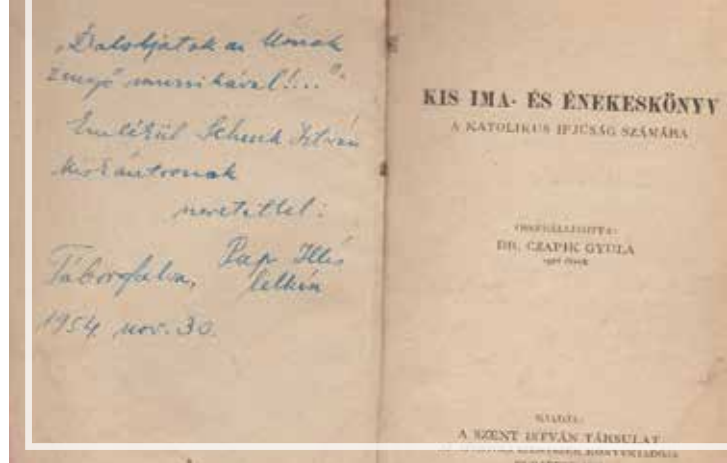 „Daloljatok az Úrnak
zengő muzsikával!..."
Emlékül Schenk István
kiskántornak
szeretettel:
Pap Illés
Táborfalva, lelkész
1954. nov. 30.
KIS IMA- ÉS ÉNEKESKÖNYV
A KATOLIKUS IFJÚSÁG SZÁMÁRA
ÖSSZEÁLLÍTOTTA:
DR. CZAPIK GYULA
KIADJA:
A SZENT ISTVÁN TÁRSULAT